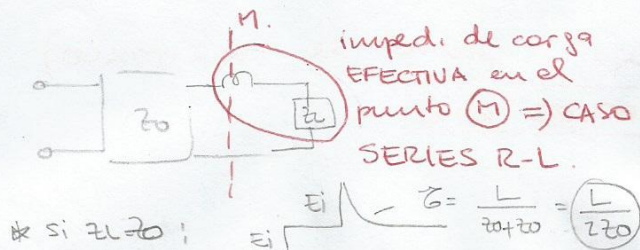 M.
impedi. de carga
EFECTIVA en el
punto (M) => CASO
SERIES R-L.
Z0
ZL
* si ZL=Z0 :
Ei
Ei
τ = L / Z0+Z0 = L / 2Z0